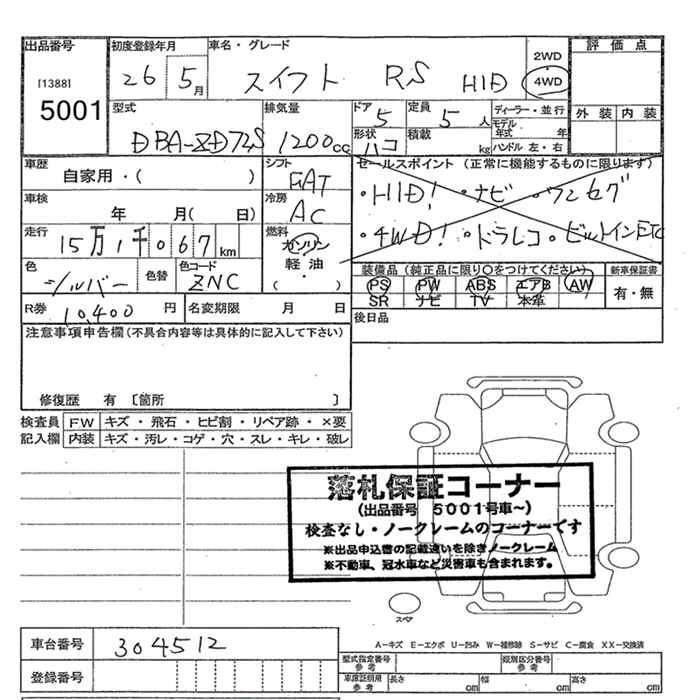 出品番号 初度登録年月 車名・グレード 評価点
[1388] 5001
26 5月 スイフト RS HID 2WD 4WD
外装 内装
型式 排気量 ドア 定員 ディーラー・並行
DBA-ZD72S 1200cc 5 5人 モデル年式 年
形状 積載 kg ハンドル 左・右
ハコ
車歴 シフト セールスポイント (正常に機能するものに限ります)
自家用・( ) FAT
・HID! ・ナビ ・ワンセグ
車検 冷房
年 月( 日) AC
・4WD! ・ドラレコ ・ビルトインETC
走行 15万1千067km 燃料 ガソリン・軽油・( )
色 シルバー 色替 色コード ZNC
装備品 (純正品に限り○をつけてください) 新車保証書
PS PW ABS エアB AW 有・無
SR ナビ TV 本革
R券 10,400 円 名変期限 月 日 後日品
注意事項申告欄 (不具合内容等は具体的に記入して下さい)
修復歴 有 [箇所 ]
検査員 FW キズ・飛石・ヒビ割・リペア跡・×要
記入欄 内装 キズ・汚レ・コゲ・穴・スレ・キレ・破レ
落札保証コーナー
(出品番号 5001号車~)
検査なし・ノークレームのコーナーです
※出品申込書の記載違いを除きノークレーム
※不動車、冠水車など災害車も含まれます。
スペア
車台番号 304512
A-キズ E-エクボ U-凹み W-補修跡 S-サビ C-腐食 XX-交換済
型式指定番号 参考 類別区分番号 参考
登録番号
車庫証明用 参考 長さ cm 幅 cm 高さ cm